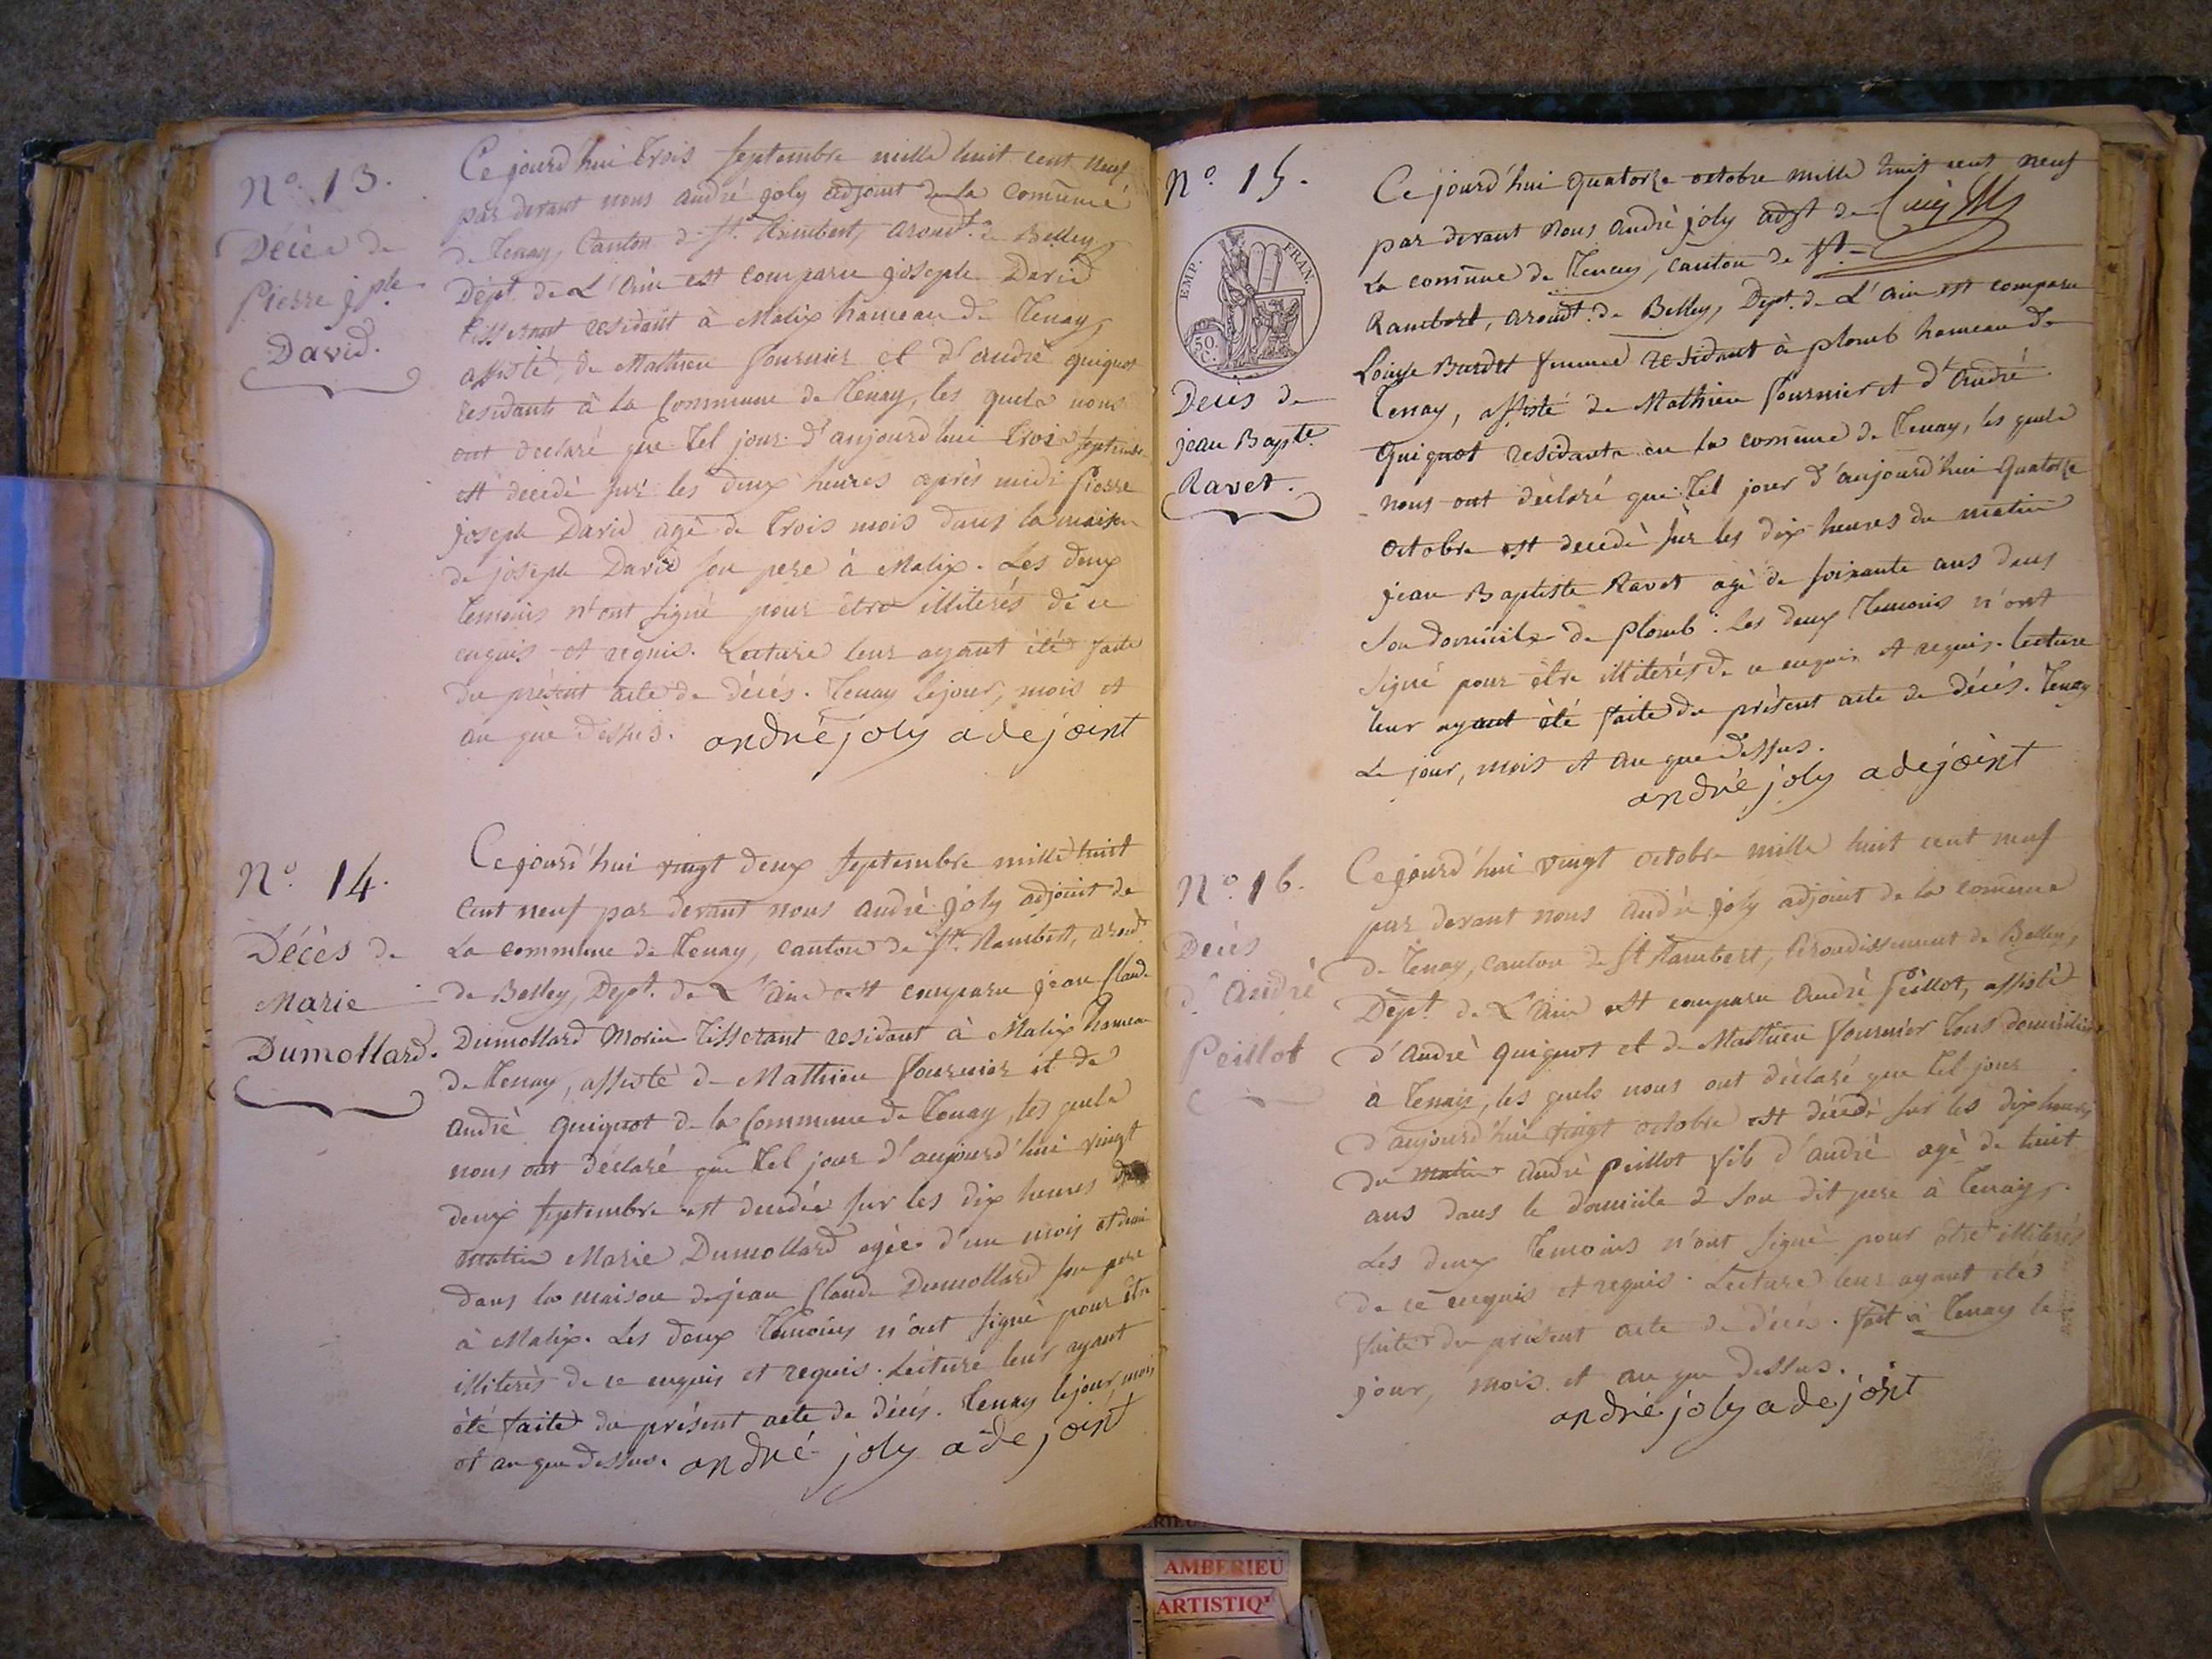 N.o 13.
Décès de
Pierre jph.
David.
Ce jourd'hui trois septembre mille huit cent neuf
par devant nous andré joly adjoint de la commune
de Tenay, Canton de St. Rambert, arondt. de Belley
Dépt. de L'Ain est comparu joseph David
tisserant residant à Malix hameau de Tenay,
assisté de Mathieu fournier et d'andré quiquot
residants à la Commune de Tenay, les quels nous
ont declaré que tel jour d'aujourd'hui trois septembre
est decedé sur les deux heures après midi Pierre
joseph David agé de trois mois dans la maison
de joseph David son pere à Malix. Les deux
temoins n'ont signé pour être illiterés de ce
enquis et requis. Lecture leur ayant été faite
du présent acte de décés. Tenay le jour, mois et
an que dessus. andré joly adejoint
N.o 14.
Décès de
Marie
Dumollard.
Ce jourd'hui vingt deux septembre mille huit
Cent neuf par devant nous andré joly adjoint de
La commune de Tenay, canton de St. Rambert, arondt.
de Belley, Dept. de L'Ain est comparu jean Claude
Dumollard Morin tisserant residant à Malix hameau
de Tenay, assisté de Mathieu fournier et de
andré quiquot de la Commune de Tenay, les quels
nous ont déclaré que tel jour d'aujourd'hui vingt
deux septembre est decedée sur les dix heures du
matin Marie Dumollard agée d'un mois et demi
dans la maison de jean Claude Dumollard son pere
à Malix. Les deux temoins n'ont signé pour être
illiterés de ce enquis et requis. Lecture leur ayant
été faite du présent acte de décés. Tenay le jour, mois
et an que dessus. andré joly adejoint
N.o 15.
EMP. FRAN.
50. C.
Décès de
jean Bapte.
Ravet.
Ce jourd'hui quatorze octobre mille huit cent neuf
par devant nous andré joly adjt de
La commune de Tenay, canton de St.
Rambert, arondt. de Belley, Dept. de L'Ain est comparu
Louise Burdet femme residant à plomb hameau de
Tenay, assisté de Mathieu fournier et d'André
Quiquot residants en la commune de Tenay, les quels
nous ont déclaré que tel jour d'aujourd'hui quatorze
octobre est decedé sur les dix heures du matin
jean Baptiste Ravet agé de soixante ans dans
son domicile de plomb. Les deux temoins n'ont
signé pour être illiterés de ce enquis et requis. Lecture
leur ayant été faite du présent acte de décés. Tenay
Le jour, mois et an que dessus.
andré joly adejoint
N.o 16.
Décès
d'André
Peillot
Ce jourd'hui vingt octobre mille huit cent neuf
par devant nous andré joly adjoint de la commune
de Tenay, canton de St Rambert, Arondissement de Belley,
Dépt. de L'Ain est comparu André Peillot, assisté
d'André quiquot et de Mathieu fournier tous domiciliés
à Tenay, les quels nous ont déclaré que tel jour
d'aujourd'hui vingt octobre est décedé sur les dix heures
du matin André peillot fils d'andré agé de huit
ans dans le domicile de son dit pere à Tenay.
Les deux temoins n'ont signé pour être illiterés
de ce enquis et requis. Lecture leur ayant été
faite du présent acte de décés. fait à Tenay le
jour, mois et an que dessus.
andré joly adejoint
AMBERIEU
ARTISTIQ'